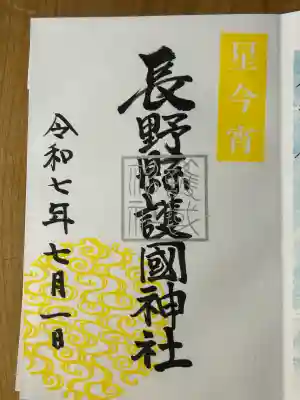 星今宵
長野縣護國神社
令和七年七月一日